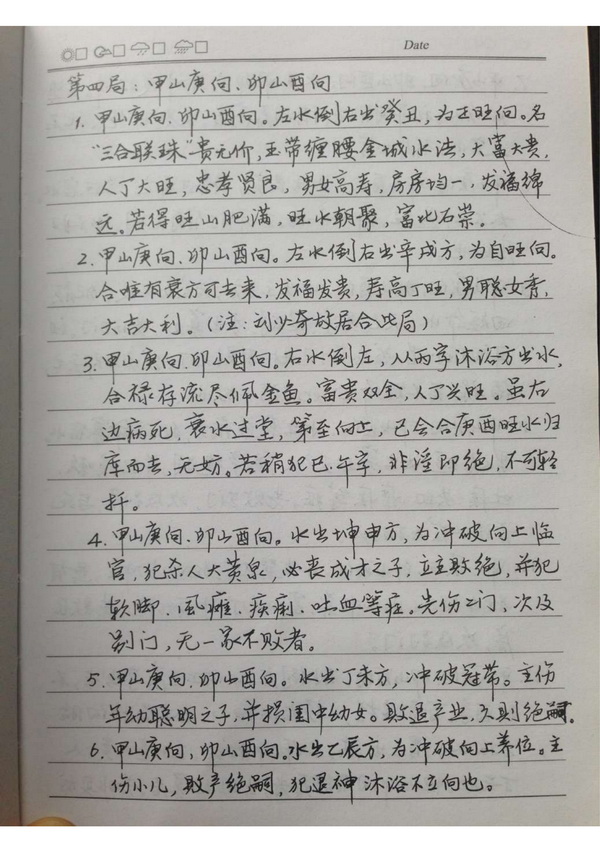 Date
第四局：甲山庚向、卯山酉向
1. 甲山庚向、卯山酉向。左水倒右出癸丑，为正旺向。名
"三合联珠"贵无价，玉带缠腰金城水法，大富大贵，
人丁大旺，忠孝贤良，男女高寿，房房均一，发福绵
远。若得旺山肥满，旺水朝聚，富比石崇。
2. 甲山庚向、卯山酉向。左水倒右出辛戌方，为自旺向。
合唯有衰方可去来，发福发贵，寿高丁旺，男聪女秀，
大吉大利。（注：刘少奇故居合此局）
3. 甲山庚向、卯山酉向。右水倒左，从丙字沐浴方出水，
合禄存流尽佩金鱼。富贵双全，人丁兴旺。虽右
边病死、衰水过堂，第至向上，已会合庚酉旺水归
库而去，无妨。若稍犯巳、午字，非淫即绝，不可轻
扦。
4. 甲山庚向、卯山酉向。水出坤申方，为冲破向上临
官，犯杀人大黄泉，必丧成才之子，立主败绝，并犯
软脚、风瘫、疾痢、吐血等症。先伤二门，次及
别门，无一家不败者。
5. 甲山庚向、卯山酉向。水出丁未方，冲破冠带。主伤
年幼聪明之子，并损闺中幼女。败退产业，久则绝嗣。
6. 甲山庚向，卯山酉向。水出乙辰方，为冲破向上养位。主
伤小儿，败产绝嗣，犯退神沐浴不立向也。